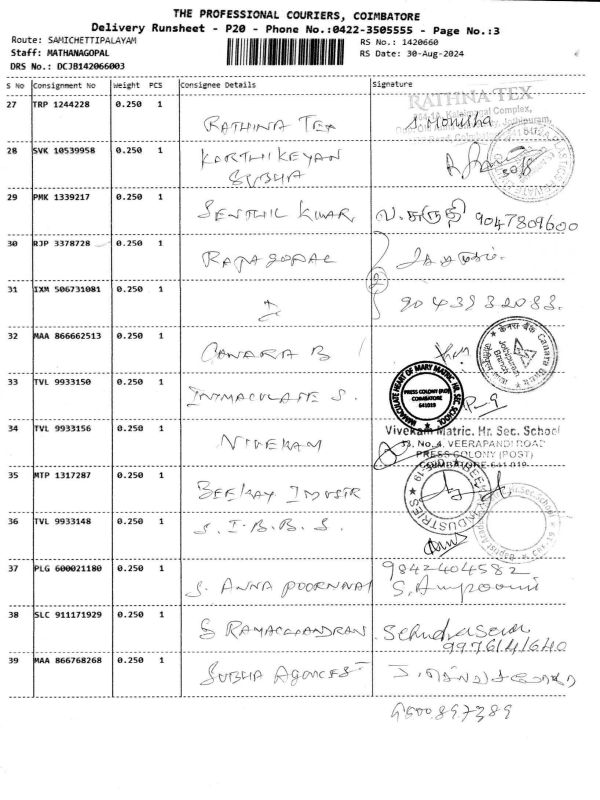 THE PROFESSIONAL COURIERS, COIMBATORE
Delivery Runsheet - P20 - Phone No.:0422-3505555 - Page No.:3
Route: SAMICHETTIPALAYAM
RS No.: 1420660
Staff: MATHANAGOPAL
RS Date: 30-Aug-2024
DRS No.: DCJB142066003
S No Consignment No Weight PCS Consignee Details Signature
27 TRP 1244228 0.250 1
RATHNA TEX
RATHNA TEX S. Monisha
28 SVK 10539958 0.250 1
KARTHIKEYAN
SUBHA
30/8
29 PMK 1339217 0.250 1
SENTHIL KUMAR 9047809600
30 RJP 3378728 0.250 1
RAJAGOPAL
2
31 IXM 506731081 0.250 1
9043932083.
32 MAA 866662513 0.250 1
CANARA B
Canara Bank
Jothipuram
Branch
33 TVL 9933150 0.250 1
IMMACULATE S.
IMMACULATE HEART OF MARY MATRIC. HR. SEC. SCHOOL
PRESS COLONY (PO)
COIMBATORE
641019
34 TVL 9933156 0.250 1
VIVEKAM
Vivekam Matric. Hr. Sec. School
VEERAPANDI ROAD
PRESS COLONY (POST)
COIMBATORE-641 019
35 MTP 1317287 0.250 1
BEEKAY INDUSTR
INDUSTRIES
36 TVL 9933148 0.250 1
S. I. B. B. S.
37 PLG 600021180 0.250 1
9842404582
S. ANNA POORNNAI
38 SLC 911171929 0.250 1
S RAMACHANDRAN
9976141640
39 MAA 866768268 0.250 1
SUBHA AGENCIES
9500897389